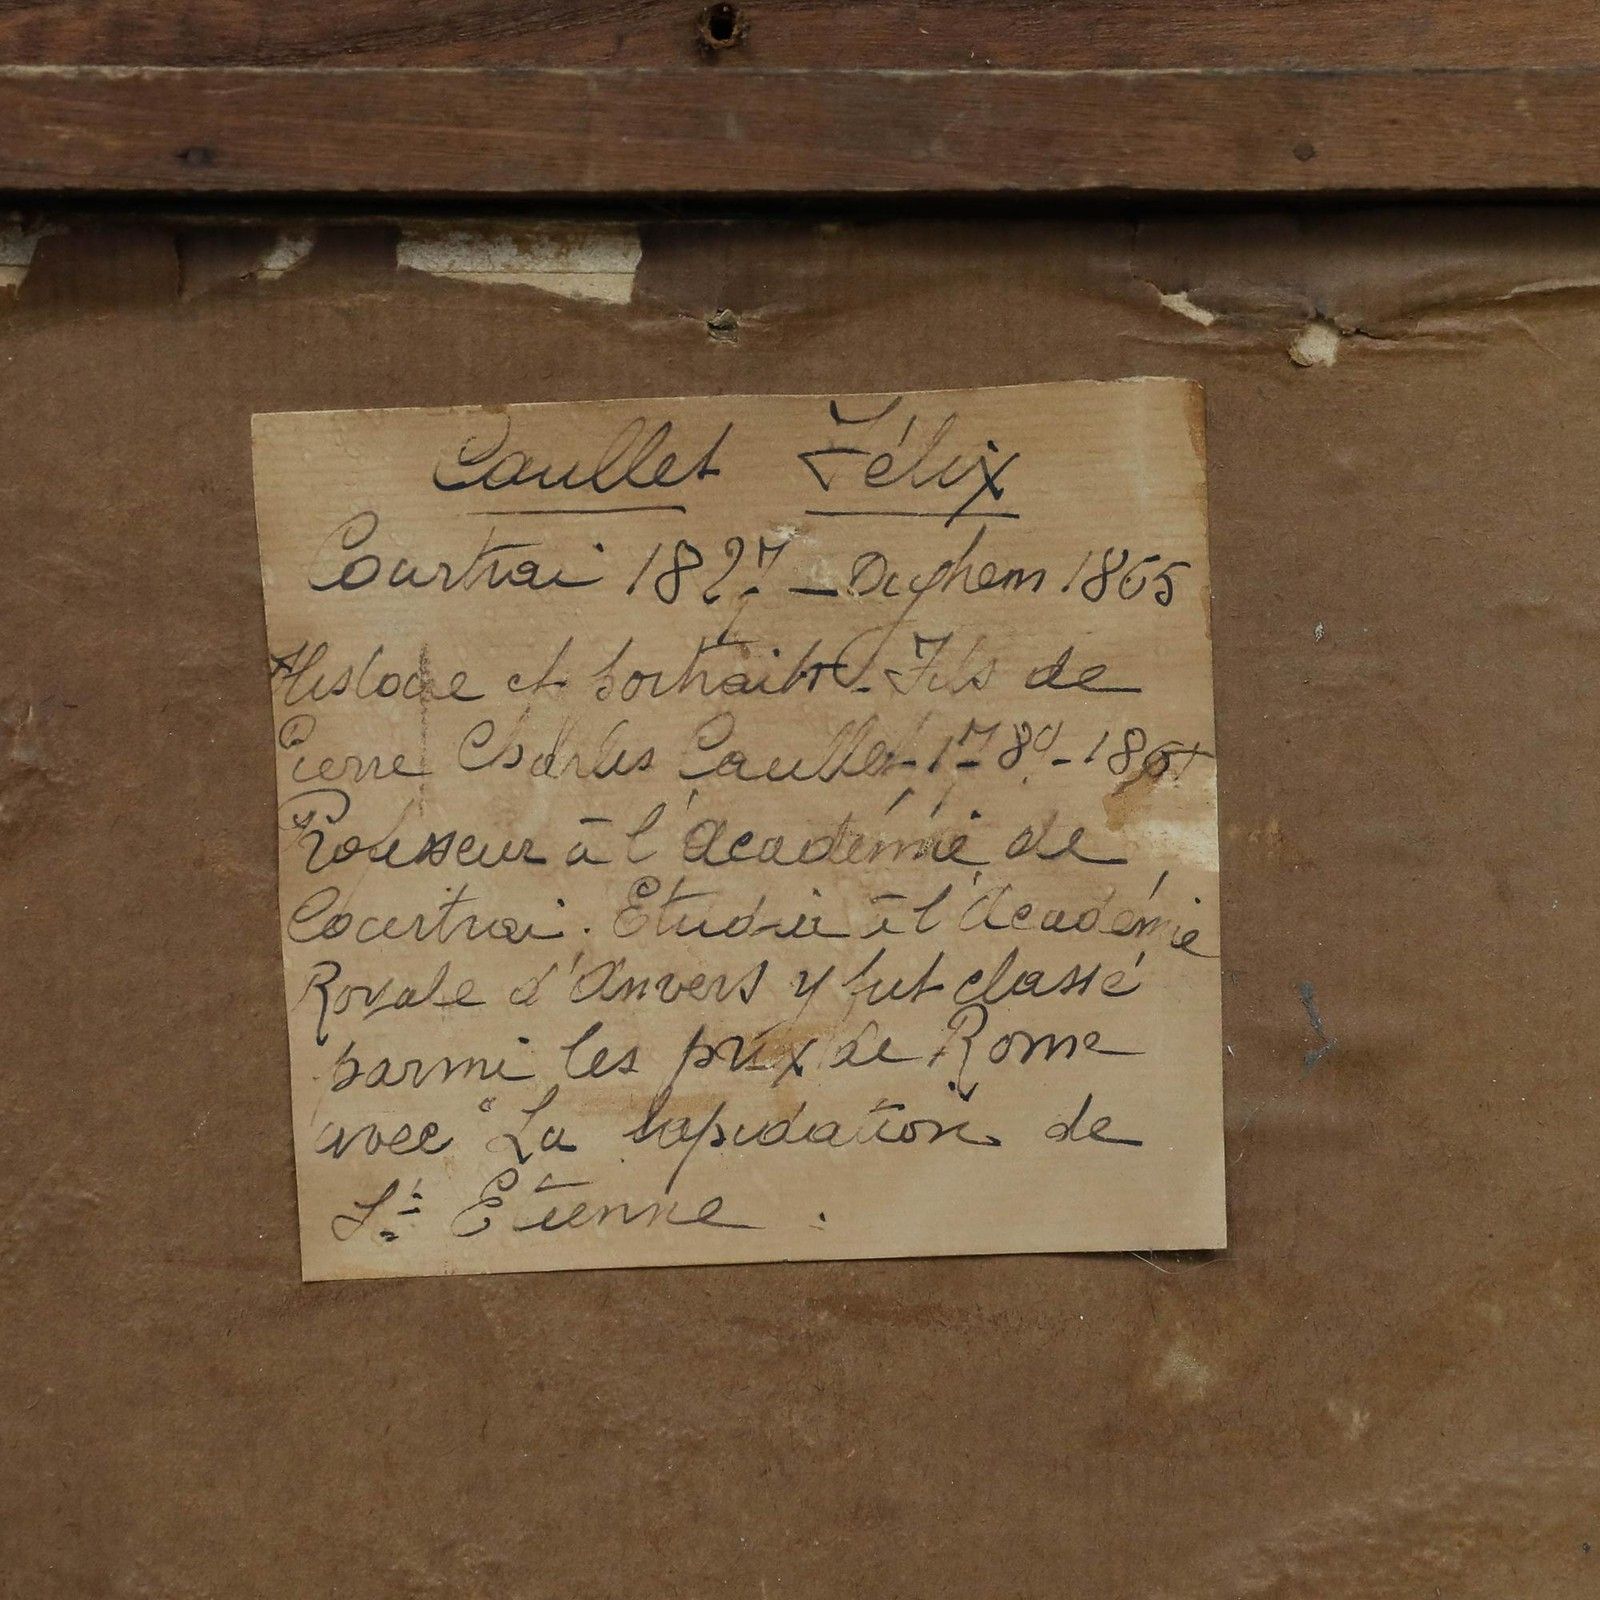 Caullet Félix
Courtrai 1827 - Dieghem 1865
Histoire et portraits - Fils de
Pierre Charles Caullet 1780-1861
Professeur à l'académie de
Courtrai. Etudia à l'Académie
Royale d'Anvers y fut classé
parmi les prix de Rome
avec "La lapidation de
St Etienne.